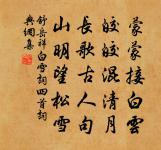 蒙蒙接白雲
皎皎混清月
長歌古人句
山明望松雪
舒岳祥白雪詞四首詞
典網集